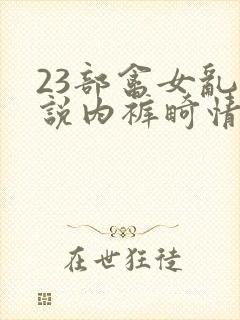 23部畲女亂
説内裤畸情
在世狂徒